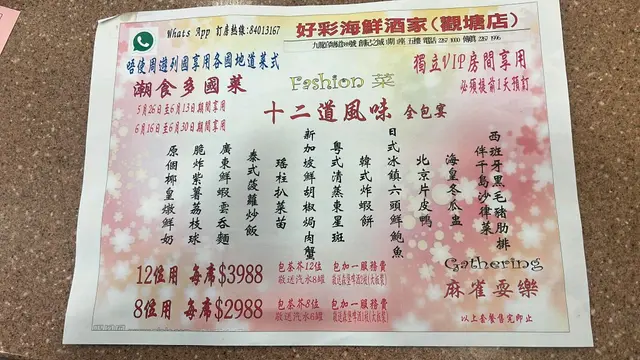 Whats App 訂房熱線:84013167
好彩海鮮酒家(觀塘店)
唔使周遊列國享用各國地道菜式
潮食多國菜
5月26日至6月13日期間享用
6月16日至6月30日期間享用
Fashion 菜
獨立VIP房間享用
必須提前1天預訂
十二道風味 全包宴
西班牙黑毛豬肋排
伴千島沙律菜
海皇冬瓜盅
北京片皮鴨
日式冰鎮六頭鮮鮑魚
韓式炸蝦餅
粵式清蒸東星斑
新加坡鮮胡椒焗肉蟹
瑤柱扒菜苗
泰式菠蘿炒飯
廣東鮮蝦雲吞麵
脆炸紫薯荔枝球
原個椰皇燉鮮奶
12位用 每席$3988
包茶芥12位
敬送汽水8罐
包加一服務費
8位用 每席$2988
包茶芥8位
敬送汽水6罐
包加一服務費
Gathering
麻雀耍樂
以上套餐售完即止